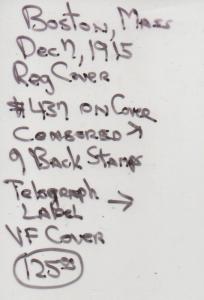 Boston, Mass
Dec 7, 1915
Reg Cover
#437 on Cover
Censored →
9 Back Stamps
Telegraph
Label →
VF Cover
125.00